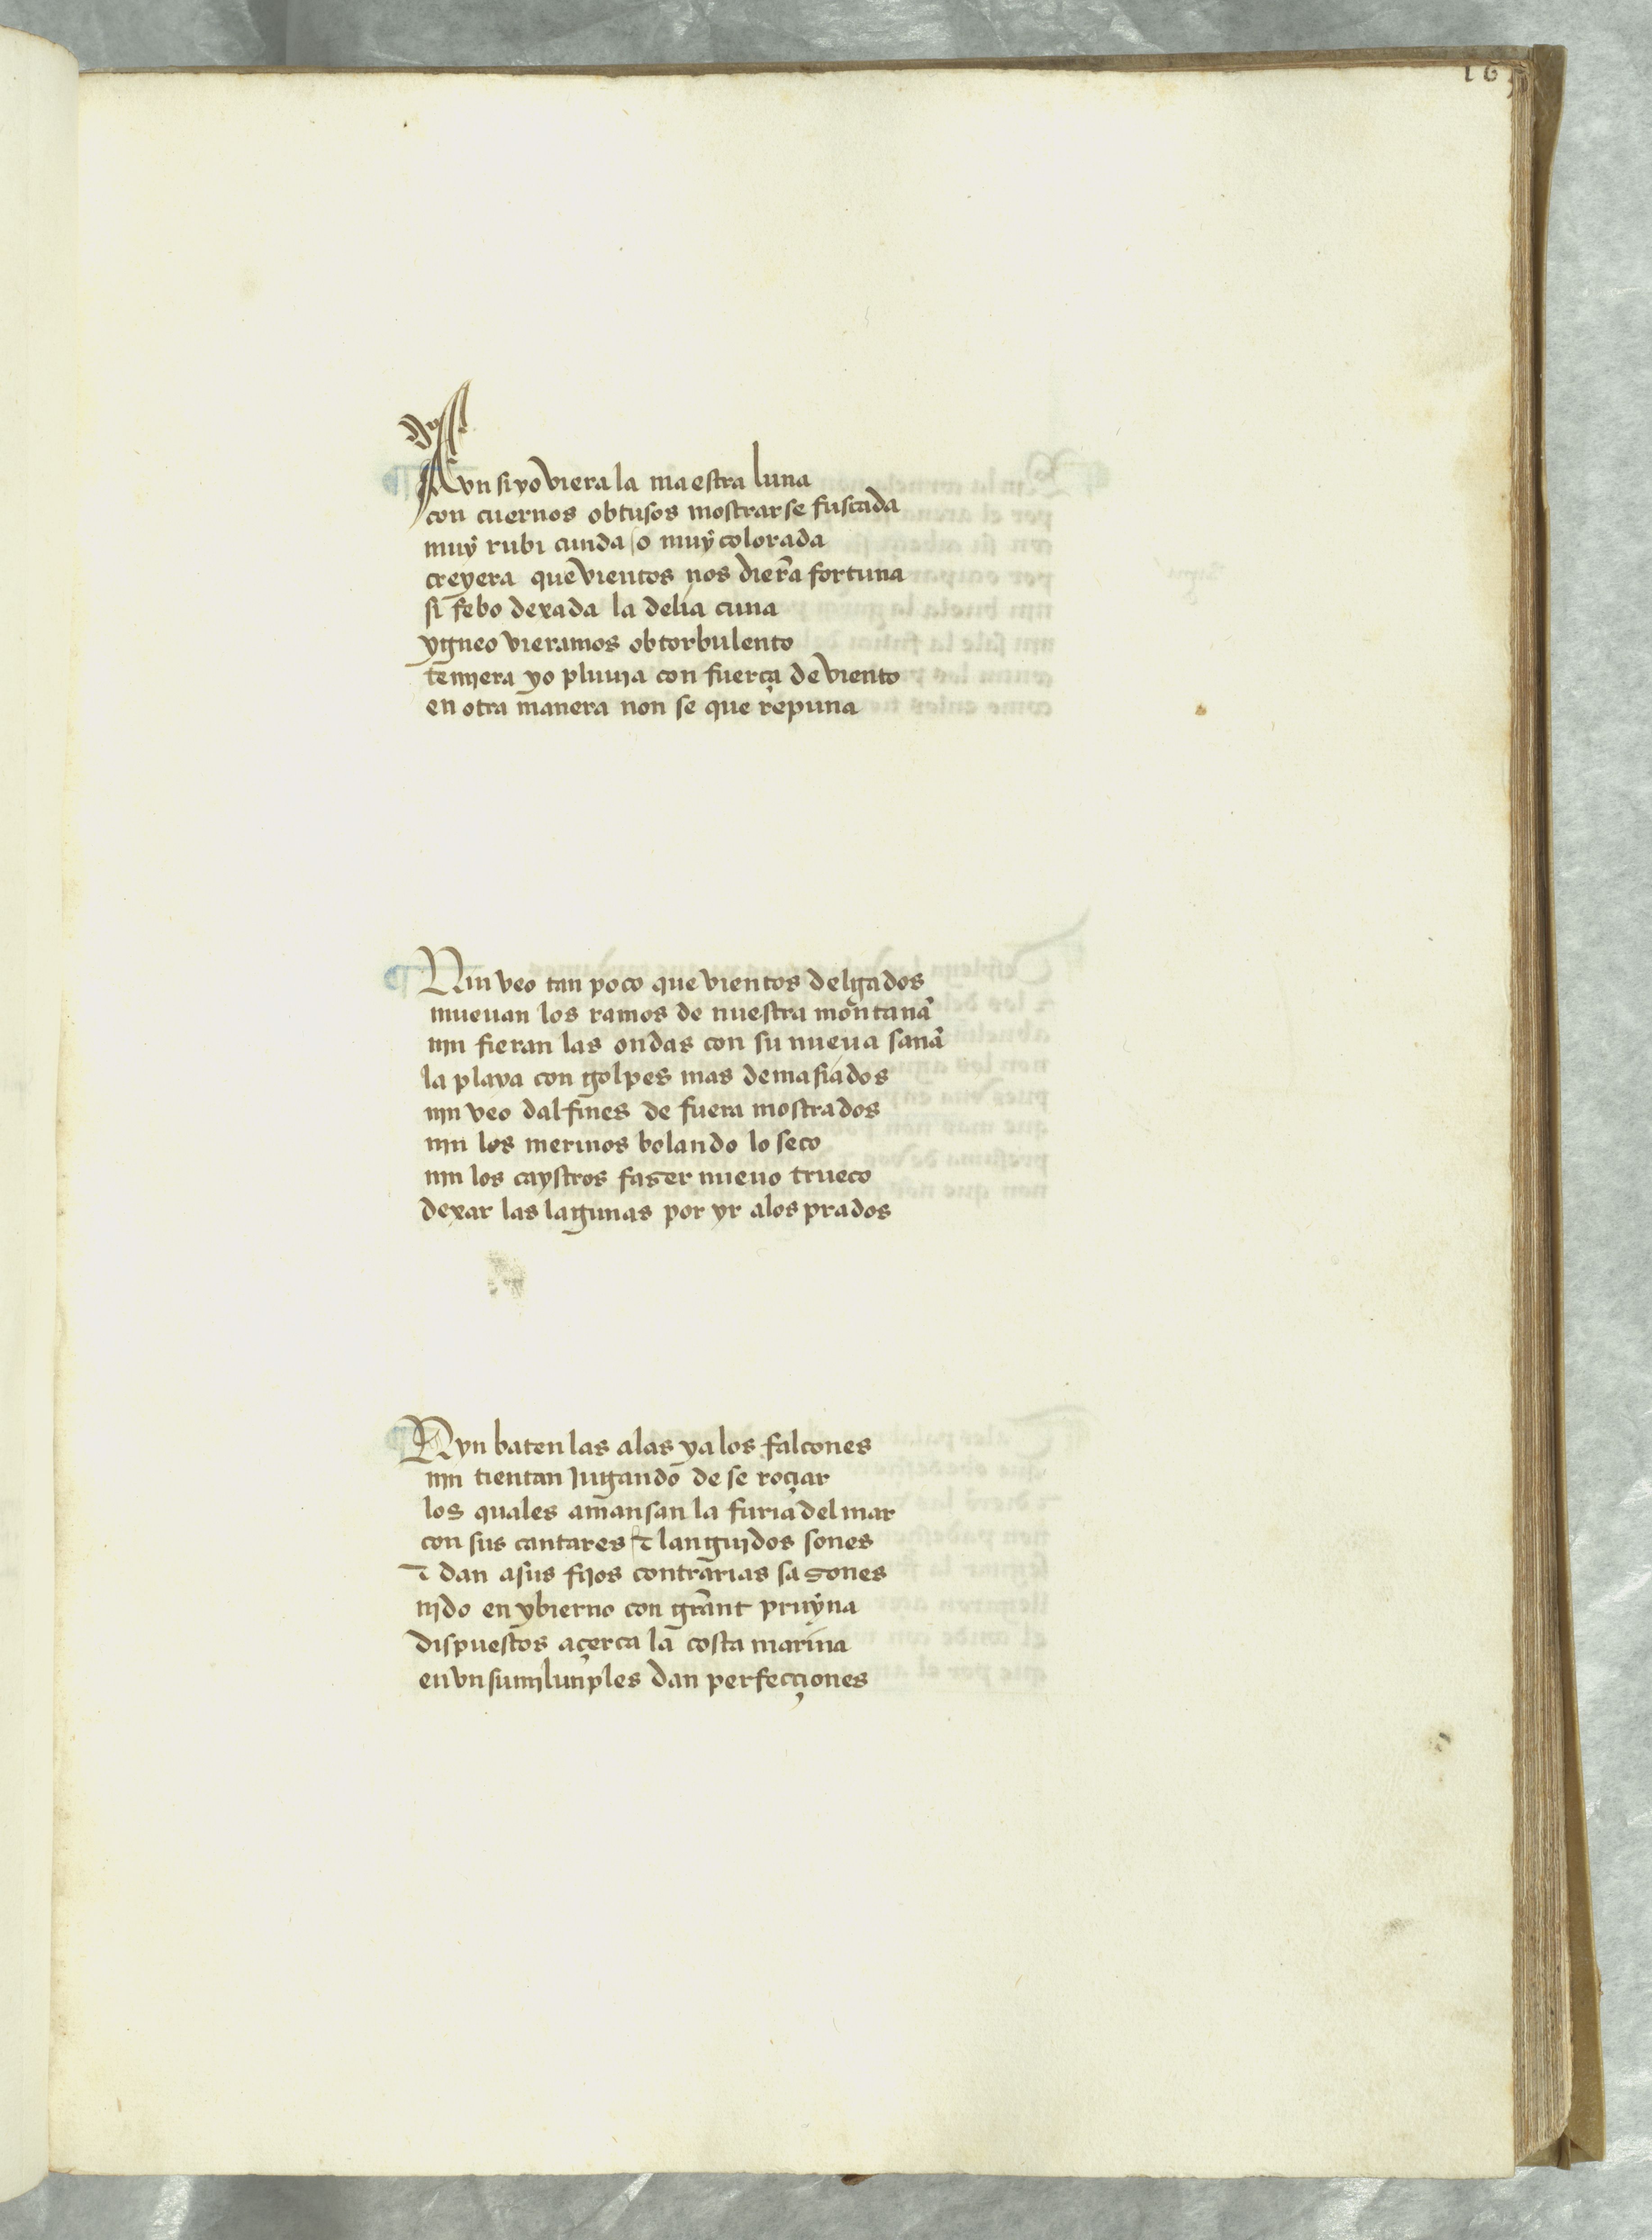 Avn si yo viera la maestra luna
con cuernos obtusos mostrarse fuscada
muẏ rubicunda / o muẏ colorada
creyera que vientos nos diera fortuna
si febo dexada la delia cuna
ygneo vieramos ob torbulento
temjera yo pluuja con fuerça de viento
en otra manera non se que repuna
Nin veo tan poco que vientos delgados
mueuan los ramos de nuestra montanã
njn fieran las ondas con su nueua sanã
la playa con golpes mas demasiados
njn veo dalfines de fuera mostrados
njn los merinos bolando lo seco
njn los caystros fazer nueuo trueco
dexar las lagunas por yr a los prados
Nyn baten las alas ya los falcones
njn tientan jugando de se roçiar
los quales amansan la furia del mar
con sus cantares / ⁊ languidos sones
⁊ dan a sus fijos contrarias sazones
njdo en ybierno con grant pruẏna
dispuestos açerca la costa marina
en vn semjlunples dan perfecçiones